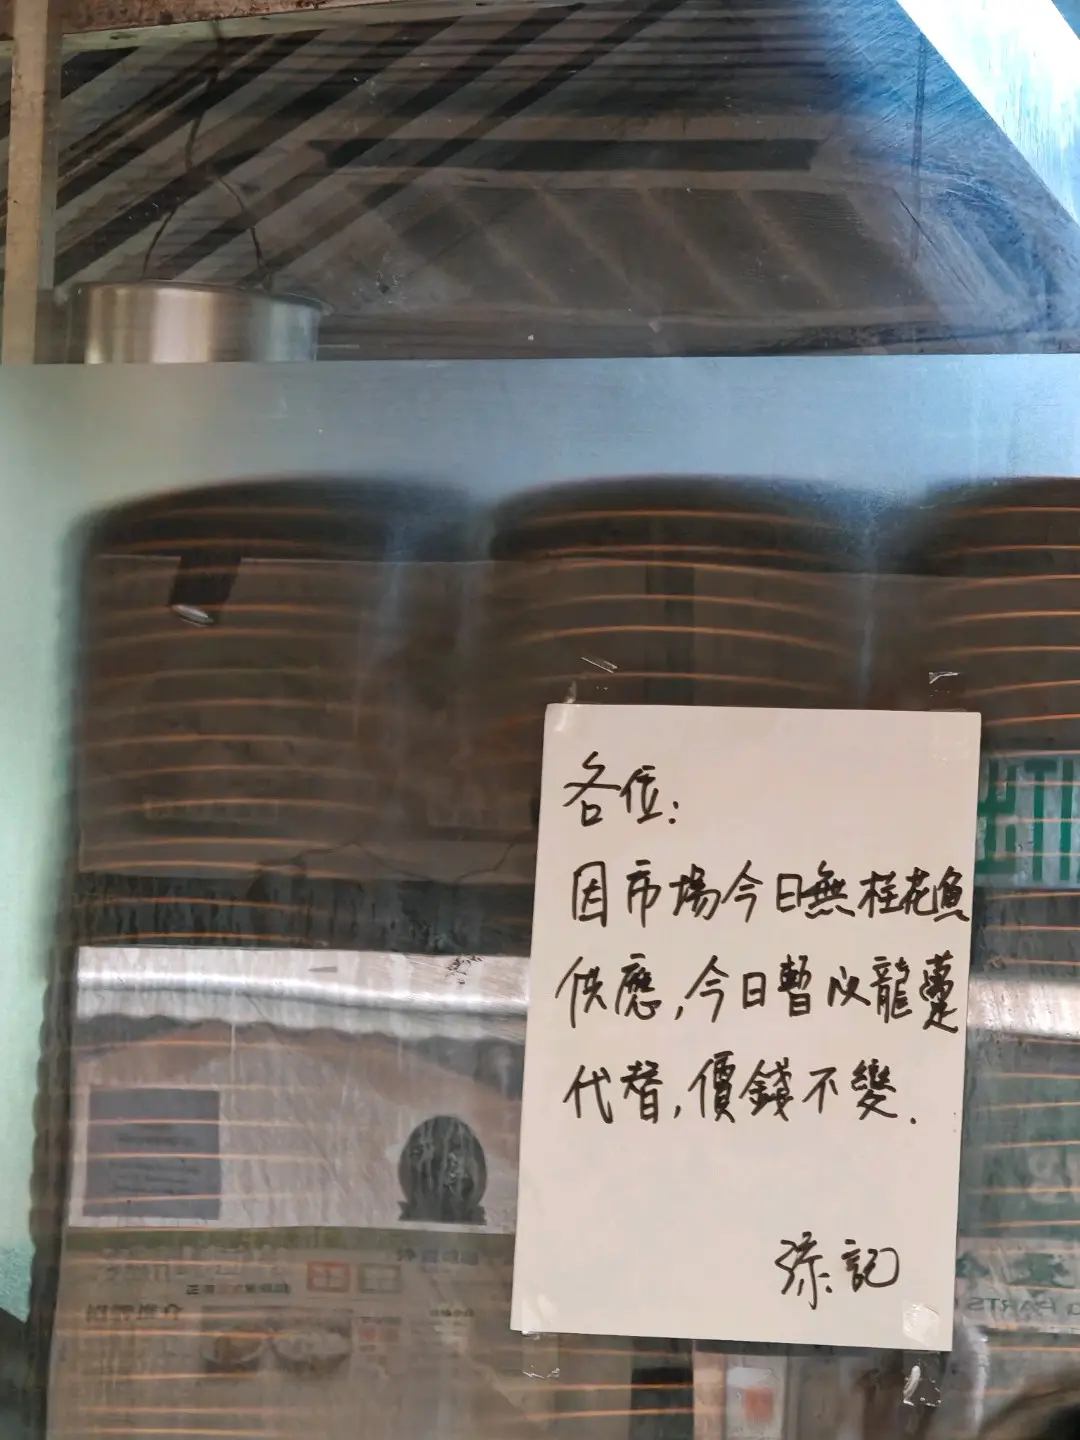 各位:
因市場今日無桂花魚
供應,今日暫以龍躉
代替,價錢不變.
添記
PARTS